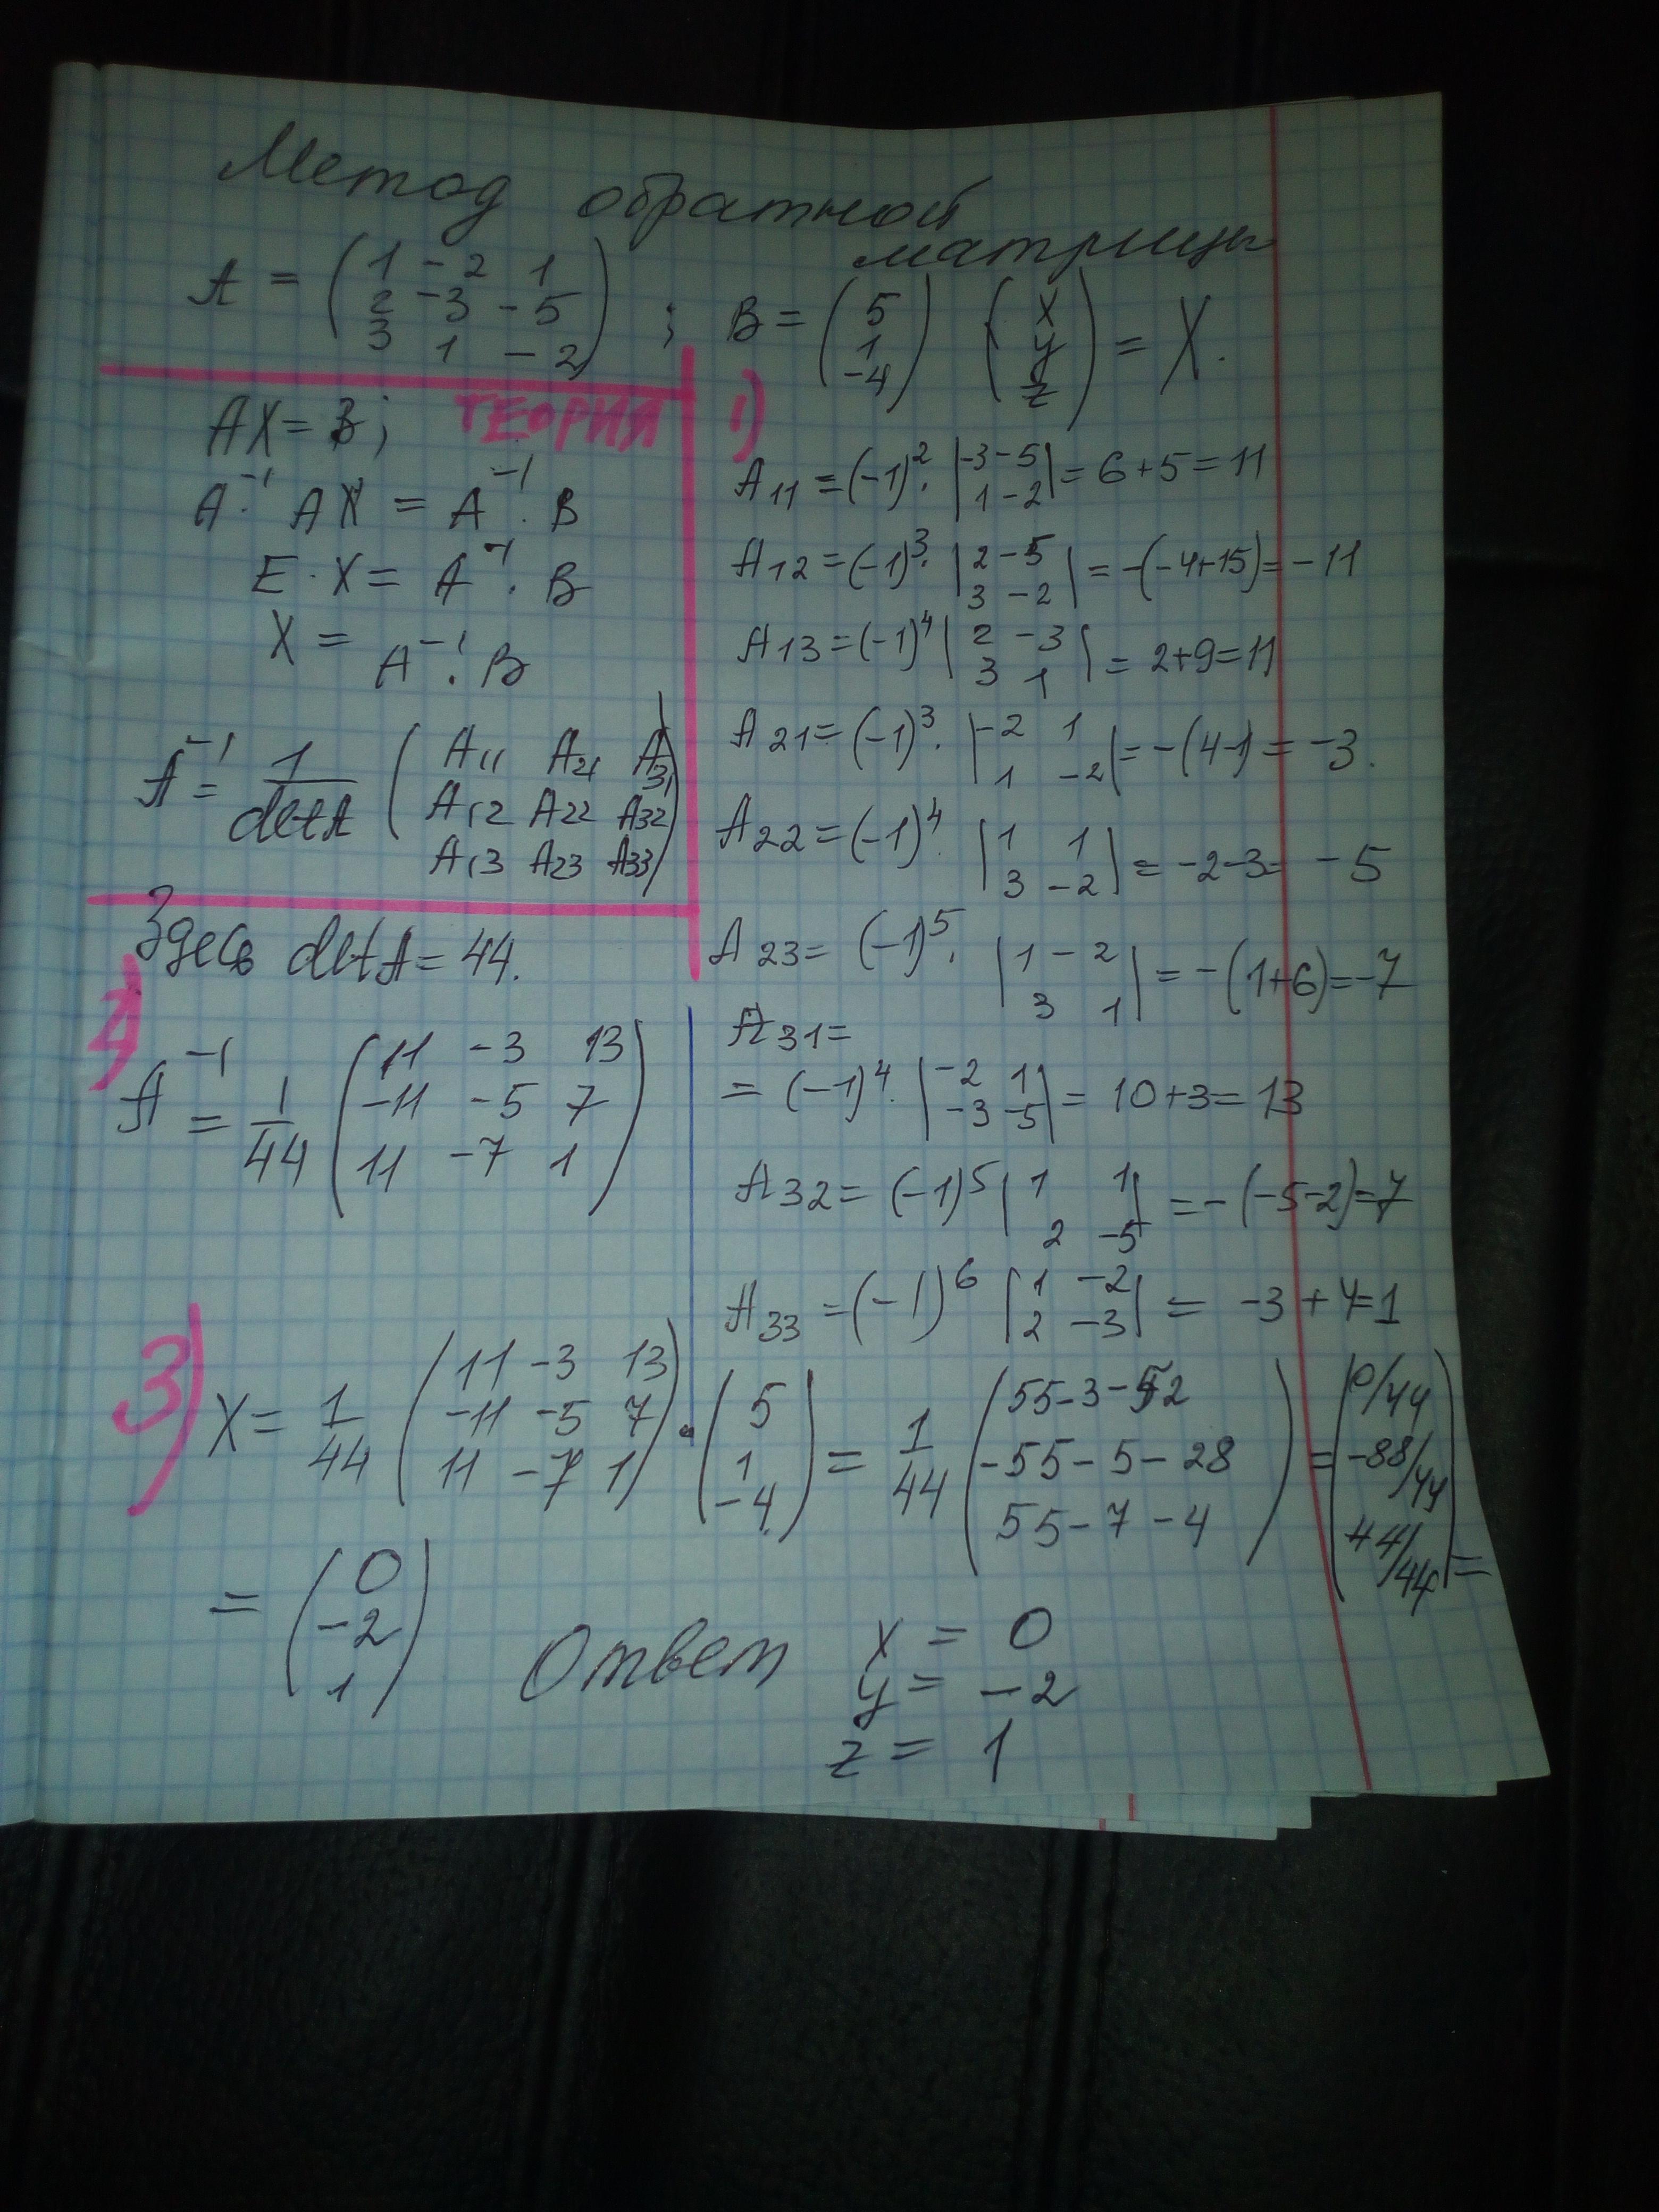 Метод обратной
матрицы
A = ( 1 -2 1
2 -3 -5
3 1 -2 ) ; B = ( 5
1
-4 ) ( x
y
z ) = X.
ТЕОРИЯ
AX = B;
A⁻¹· AX = A⁻¹· B
E · X = A⁻¹· B
X = A⁻¹· B
A⁻¹ = 1/detA ( A11 A21 A31
A12 A22 A32
A13 A23 A33 )
1)
A11 = (-1)²· |-3 -5
1 -2| = 6+5 = 11
A12 = (-1)³· |2 -5
3 -2| = -(-4+15) = -11
A13 = (-1)⁴ |2 -3
3 1| = 2+9 = 11
A21 = (-1)³· |-2 1
1 -2| = -(4-1) = -3.
A22 = (-1)⁴· |1 1
3 -2| = -2-3 = -5
A23 = (-1)⁵· |1 -2
3 1| = -(1+6) = -7
A31 =
= (-1)⁴· |-2 1
-3 -5| = 10+3 = 13
A32 = (-1)⁵ |1 1
2 -5| = -(-5-2) = 7
A33 = (-1)⁶ |1 -2
2 -3| = -3+4=1
Здесь detA = 44.
2)
A⁻¹ = 1/44 ( 11 -3 13
-11 -5 7
11 -7 1 )
3)
X = 1/44 ( 11 -3 13
-11 -5 7
11 -7 1 ) · ( 5
1
-4 ) = 1/44 ( 55-3-52
-55-5-28
55-7-4 ) = ( 0/44
-88/44
44/44 ) =
= ( 0
-2
1 )
Ответ
x = 0
y = -2
z = 1